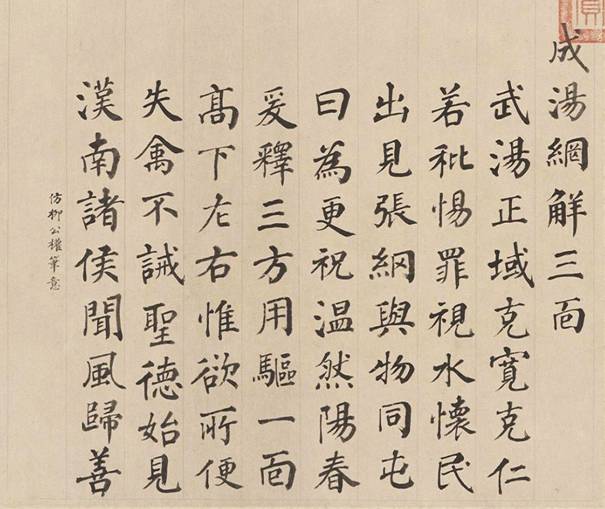 成湯網解三面
武湯正域克寛克仁
若秕惕罪視水懷民
出見張網與物同屯
曰為更祝温然陽春
爰釋三方用驅一面
髙下左右惟欲所便
失禽不誡聖德始見
漢南諸侯聞風歸善
仿柳公權筆意